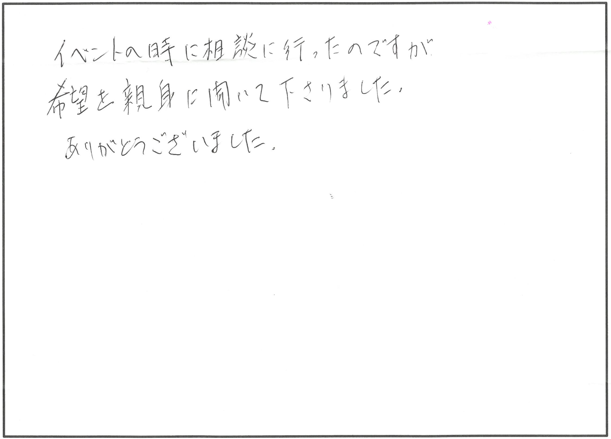 イベントの時に相談に行ったのですが
希望を親身に聞いて下さりました。
ありがとうございました。